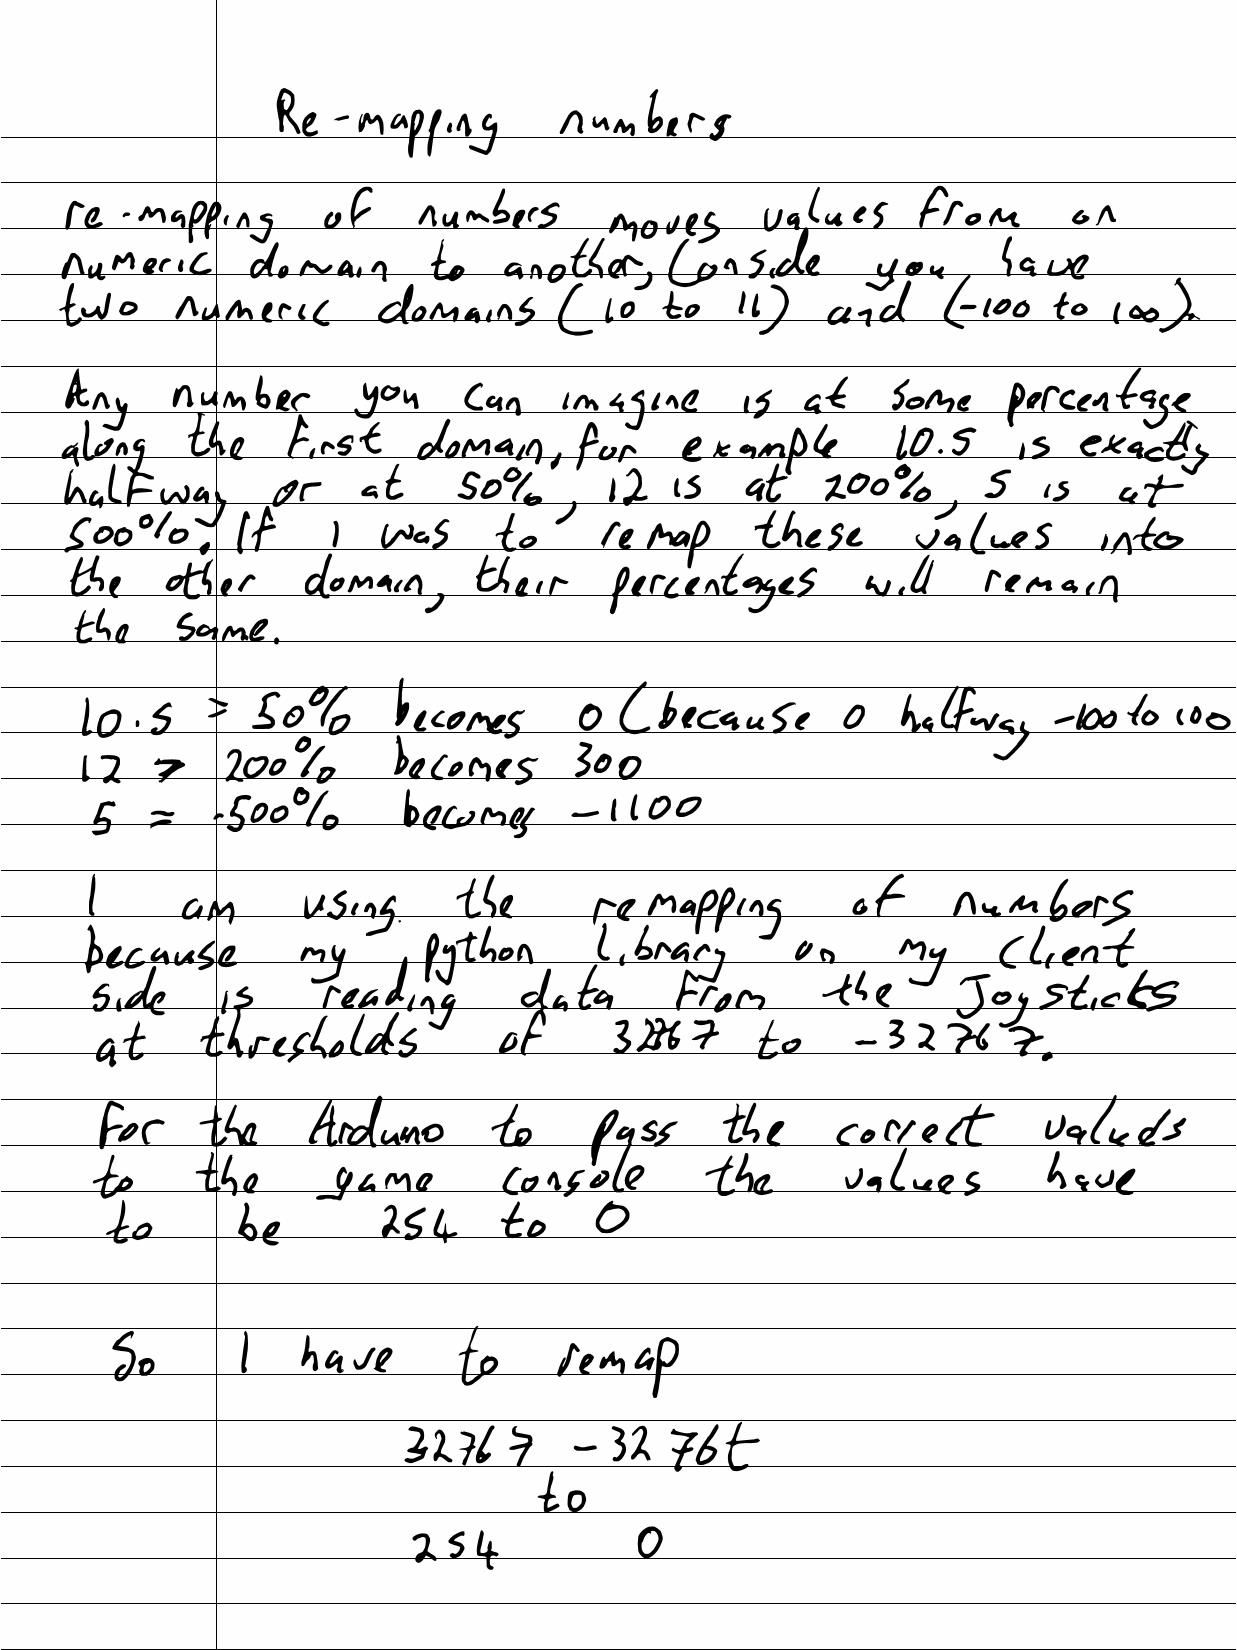 Re-mapping numbers
re-mapping of numbers moves values from on
numeric domain to another, Conside you have
two numeric domains (10 to 11) and (-100 to 100).
Any number you can imagine is at some percentage
along the first domain, for example 10.5 is exactly
halfway or at 50%, 12 is at 200%, 5 is at
500%. If I was to remap these values into
the other domain, their percentages will remain
the same.
10.5 > 50% becomes 0 (because 0 halfway -100 to 100
12 > 200% becomes 300
5 = -500% becomes -1100
I am using the remapping of numbers
because my python library on my client
side is reading data from the Joysticks
at thresholds of 32767 to -32767.
For the Arduino to pass the correct valueds
to the game console the values have
to be 254 to 0
So I have to remap
32767 -3276t
to
254 0